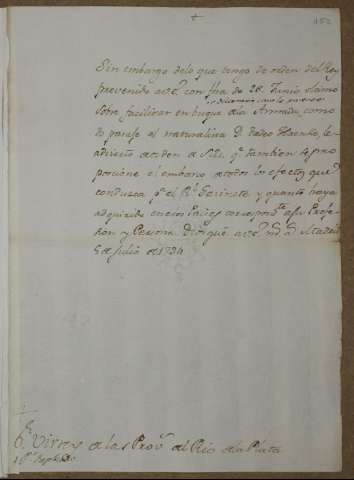 152
Sin embargo delo que tengo de orden del Rey
prevenido a V.E. con fha de 28 Junio ultimo
sobre facilitar embarque dela Armada como
al naturalista D. Tadeo Haenke, le
advierto de orden de S.M. q.e tambien se pro
porcione el embarco de todos los efectos que
conduzca p.a el R.l Gavinete y quanto haya
adquirido en esos Paises correspond.te a su Profe
sion y Persona. Dios gue a V.E. m.s a.s Madrid
5 de Julio de 1794
S.or Virrey de las Prov.s del Rio dela Plata